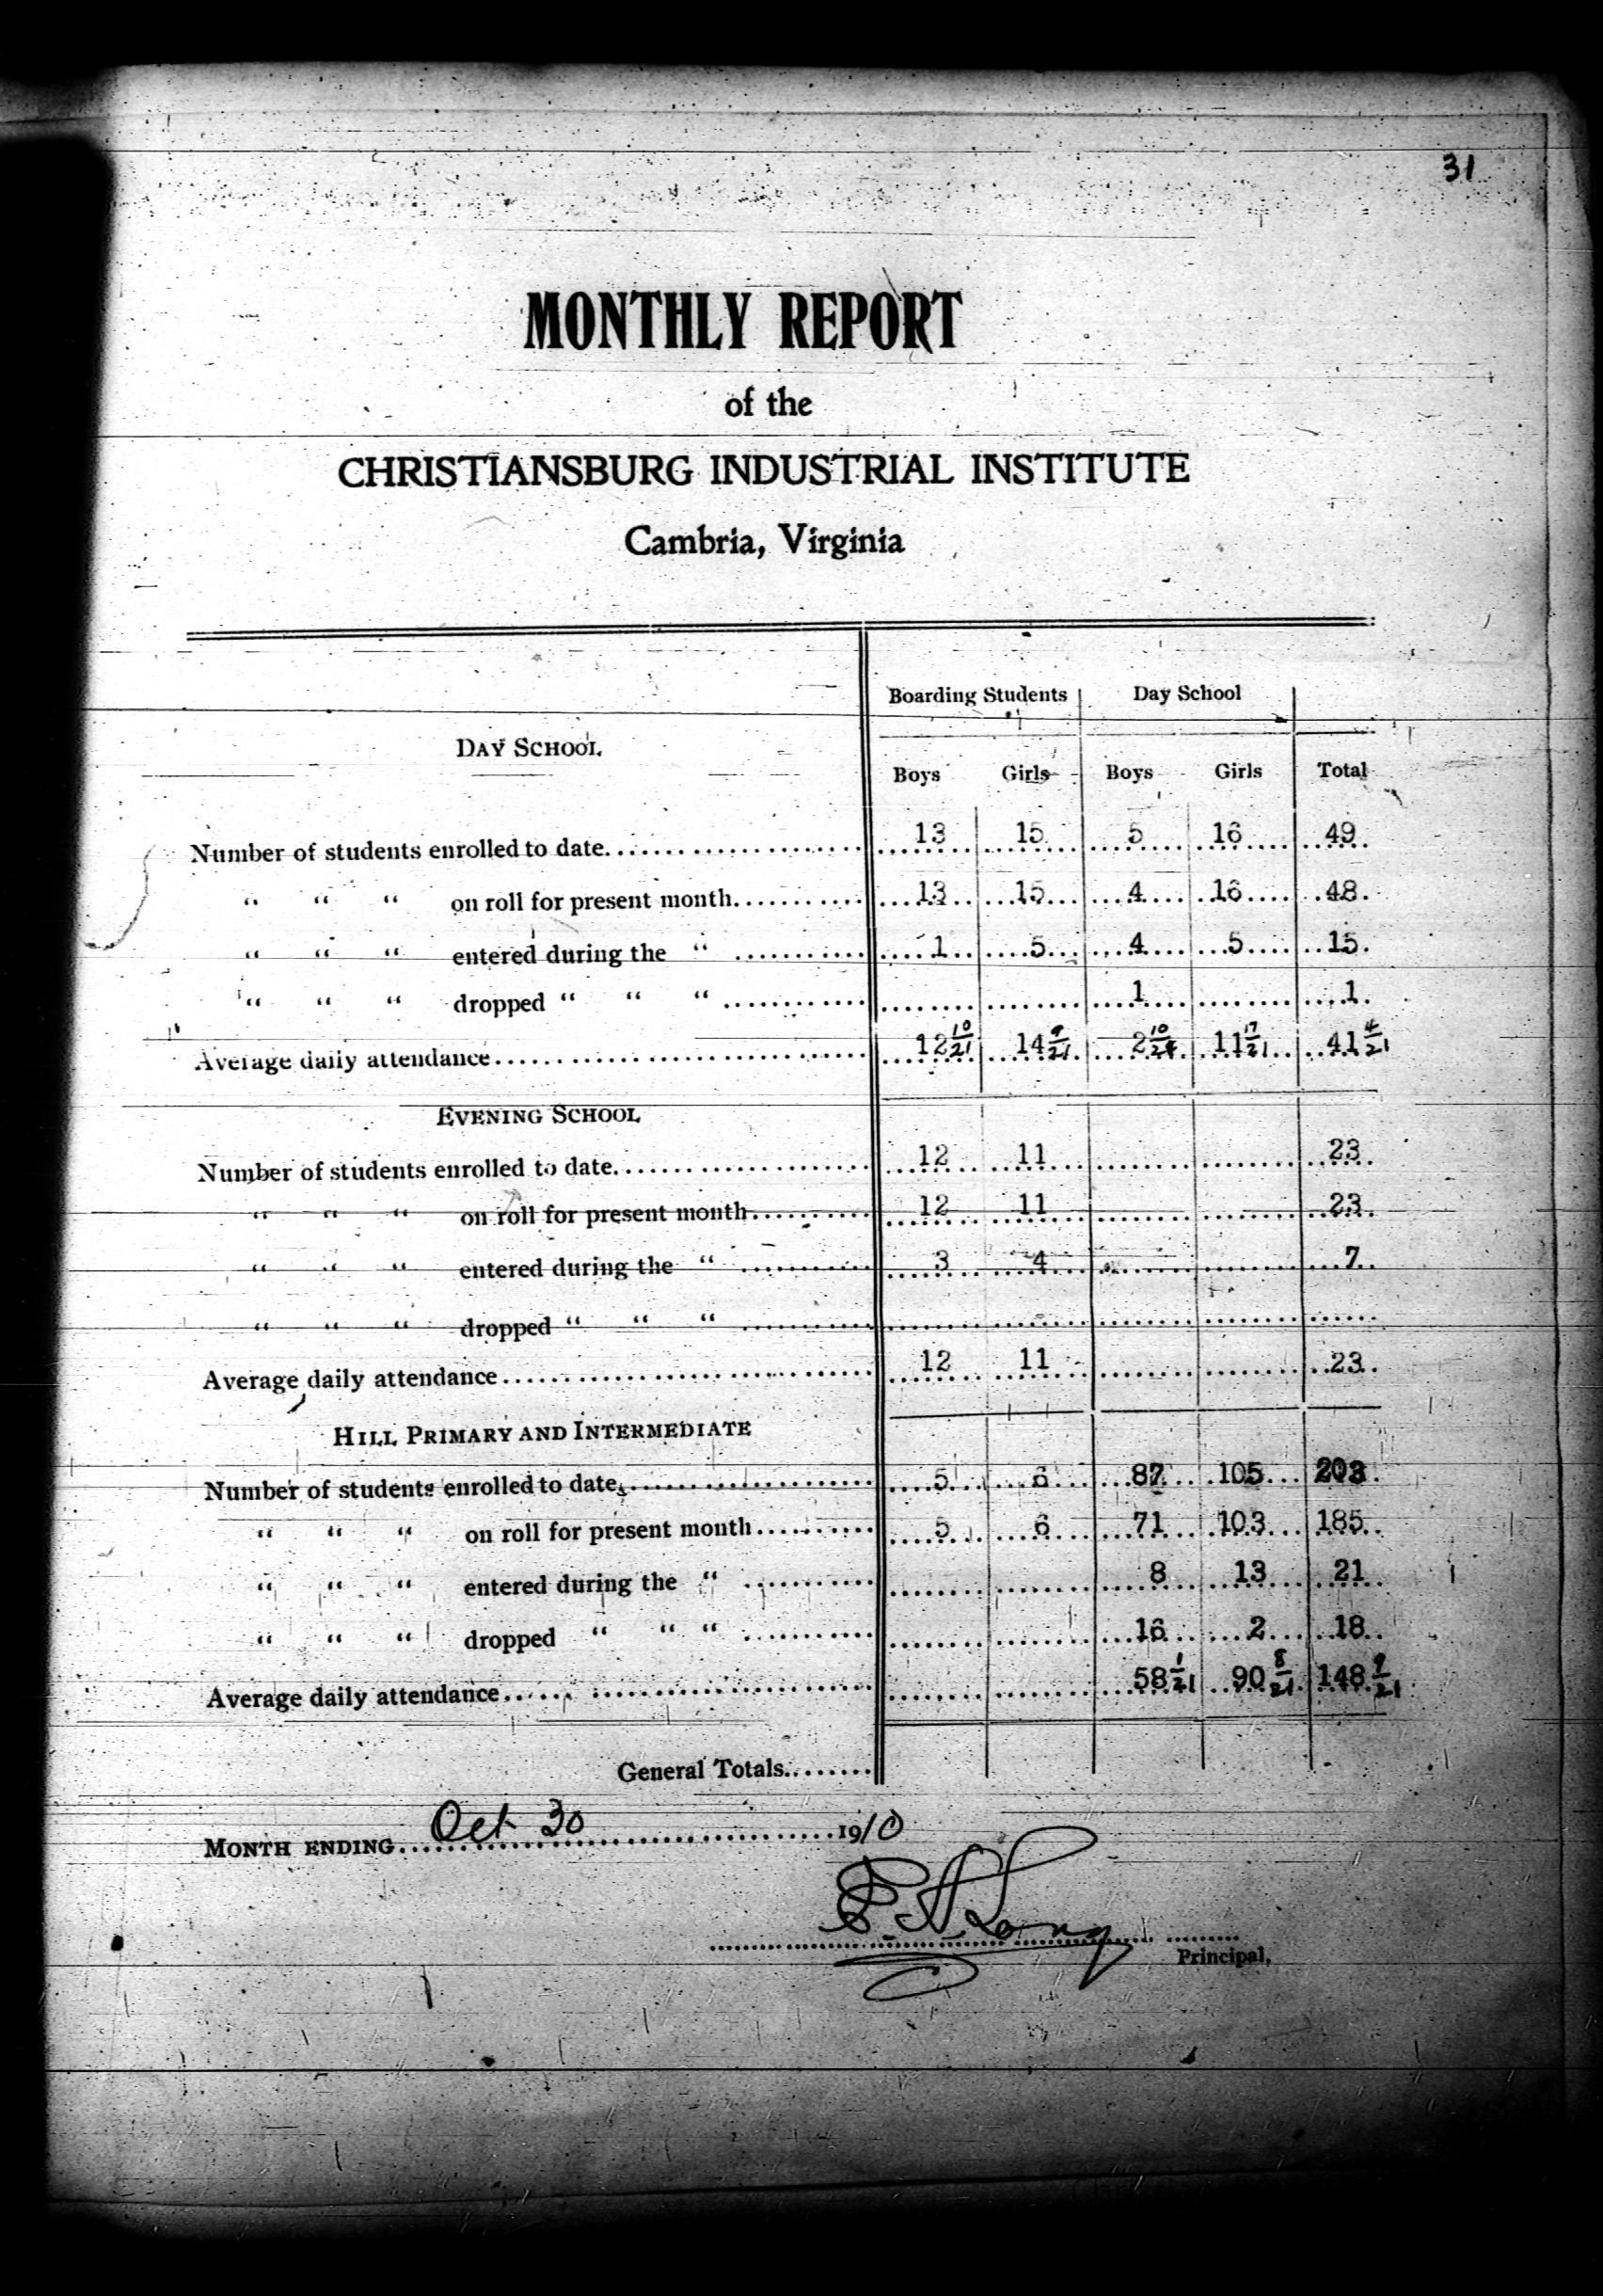 31
MONTHLY REPORT
of the
CHRISTIANSBURG INDUSTRIAL INSTITUTE
Cambria, Virginia
Boarding Students Day School
DAY SCHOOL
Boys Girls Boys Girls Total
Number of students enrolled to date 13 15 5 16 49
“ “ “ on roll for present month 13 15 4 16 48
“ “ “ entered during the “ 1 5 4 5 15
“ “ “ dropped “ “ “ 1 1
Average daily attendance 12 10/21 14 9/21 2 10/21 11 17/21 41 4/21
EVENING SCHOOL
Number of students enrolled to date 12 11 23
“ “ “ on roll for present month 12 11 23
“ “ “ entered during the “ 3 4 7
“ “ “ dropped “ “ “
Average daily attendance 12 11 23
HILL PRIMARY AND INTERMEDIATE
Number of students enrolled to date 5 6 87 105 203
“ “ “ on roll for present month 5 6 71 103 185
“ “ “ entered during the “ 8 13 21
“ “ “ dropped “ “ “ 16 2 18
Average daily attendance 58 1/21 90 8/21 148 9/21
General Totals
MONTH ENDING Oct 30 1910
E A Long
Principal,